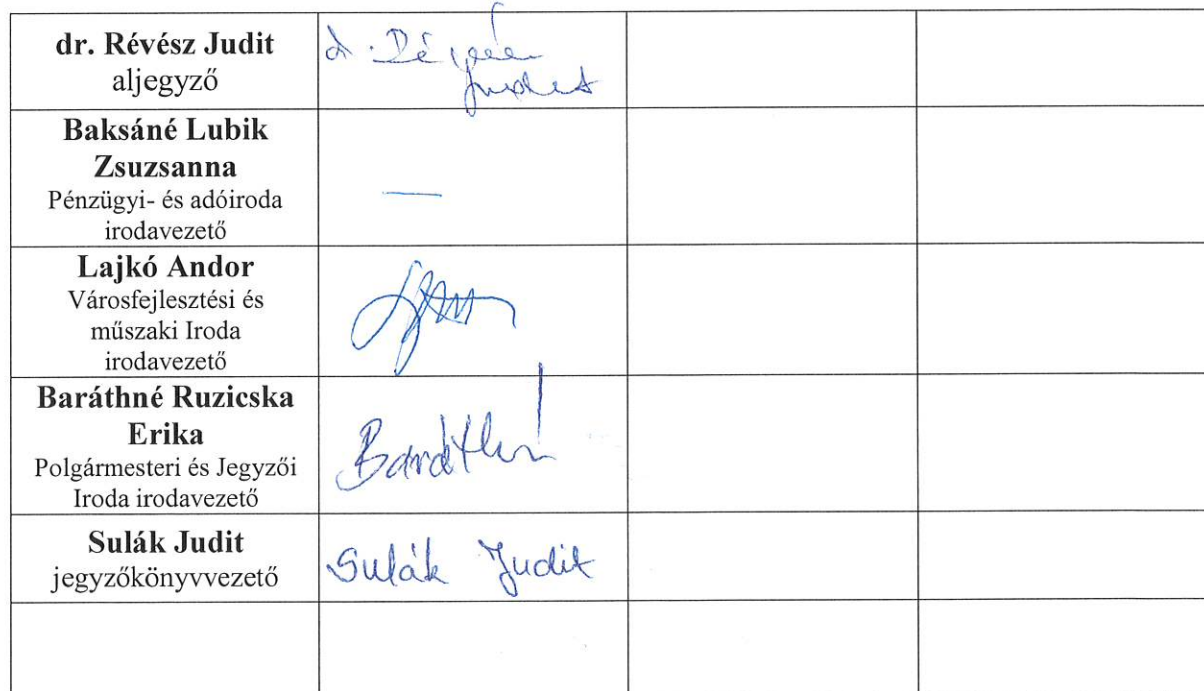 dr. Révész Judit
aljegyző
dr. Révész
Judit
Baksáné Lubik
Zsuzsanna
Pénzügyi- és adóiroda
irodavezető
—
Lajkó Andor
Városfejlesztési és
műszaki Iroda
irodavezető
Baráthné Ruzicska
Erika
Polgármesteri és Jegyzői
Iroda irodavezető
Baráthné
Sulák Judit
jegyzőkönyvvezető
Sulák Judit